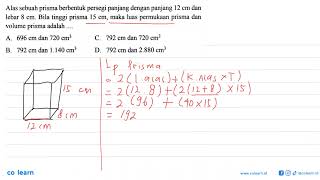 Alas sebuah prisma berbentuk persegi panjang dengan panjang 12 cm dan
lebar 8 cm. Bila tinggi prisma 15 cm, maka luas permukaan prisma dan
volume prisma adalah ....
A. 696 cm dan 720 cm³
C. 792 cm dan 720 cm²
B. 792 cm dan 1.140 cm³
D. 792 cm dan 2.880 cm³
Lp Prisma
= 2 (l. alas) + (k. alas × T)
= 2 (12 8) + (2(12+8) × 15)
= 2 (96) + (40 × 15)
= 192
15 cm
8 cm
12 cm
co learn
www.colearn.id
@colearn.id